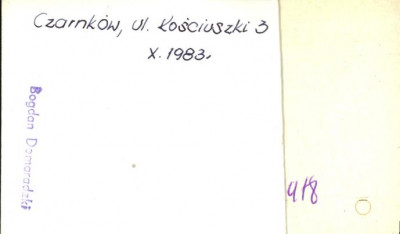 Czarnków, ul. Kościuszki 3
X. 1983.
Bogdan Domaradzki
418